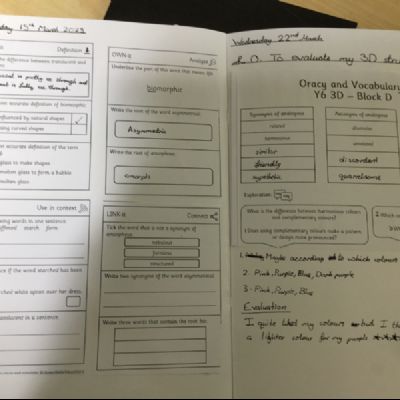 15th March 2023
Definition
the difference between translucent and
is partly see through and
is fully see through.
accurate definition of biomorphic
influenced by natural shapes
using curved shapes
accurate definition of the term
glass to make shapes
molten glass to form a bubble
molten glass
Use in context
words in one sentence.
different search form
if the word starched has been
starched white apron over her dress.
translucent in a sentence
OWN it
Analyse
Underline the part of this word that means life
biomorphic
Write the root of the word asymmetrical.
Write the root of amorphous.
LINK it
Connect
Tick the word that is not a synonym of
amorphous.
nebulous
formless
structured
Write two synonyms of the word asymmetrical
Write three words that contain the root bio.
Wednesday 22nd March
L.O. To evaluate my 3D
Oracy and Vocabulary
Y6 3D – Block D
Synonyms of analogous
Antonyms of analogous
related
dissimilar
harmonious
unrelated
similar
discordant
friendly
quarrelsome
sympathetic
Exploration:
What is the difference between harmonious colours
and complementary colours?
Does using complementary colours make a pattern
or design more pronounced?
Which
1. Maybe according to which colours
2. Pink, Purple, Blue, Dark purple
3. Pink, Purple, Blue
Evaluation
I quite liked my colours but I
a lighter colour for my purple